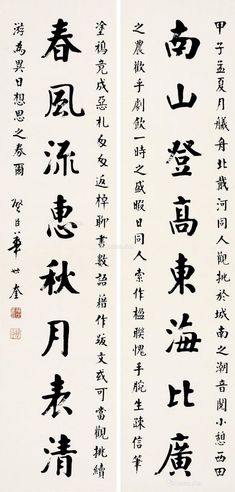 甲子孟夏月艤舟北戴河同人觀挑於城南之潮音閣小憩西田
南山登高東海比廣
之農歡乎劇飲一時之盛暇日同人索作楹聯愧手腕生疎信筆
塗鴉竟成惡札匆匆返棹聊書數語藉作跋文或可當觀挑續
春風流惠秋月表清
游為異日想思之券爾
弼臣華世奎